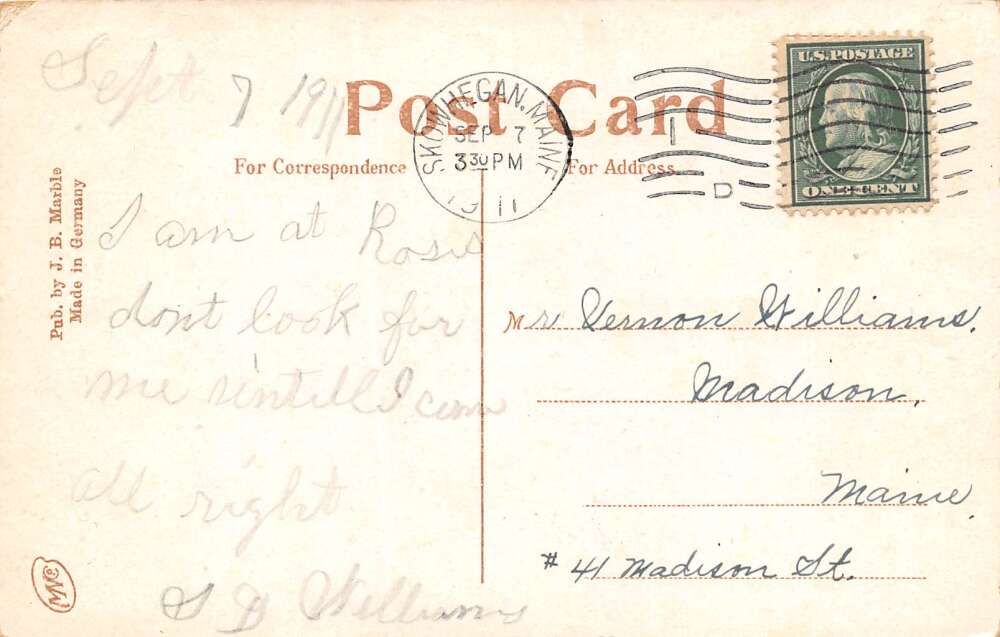 Sept 7 1911
Post Card
For Correspondence
For Address.
SKOWHEGAN, MAINE
SEP 7
3 30 PM
1911
1
D
U.S. POSTAGE
ONE CENT
Pub. by J. B. Marble
Made in Germany
I am at Roses
dont look for
me untill I com
all right
S D Williams
Mr Vernon Williams.
Madison,
Maine
# 41 Madison St.